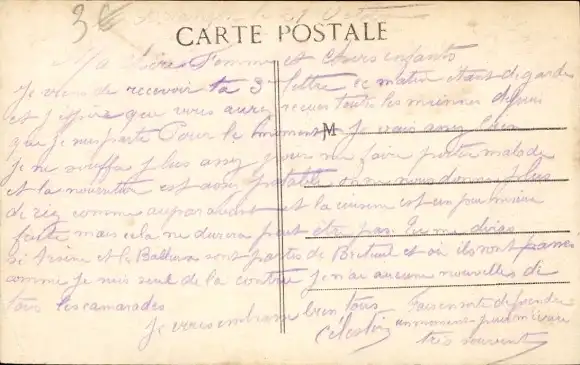 CARTE POSTALE
Ma chère Femme et chers enfants
Je viens de recevoir ta 3e lettre ce matin étant de garde
et j'espère que vous aurez reçues toutes les miennes depuis
que je suis partis Pour le moment je vais assez bien
M
je ne souffre plus assez pour me faire porter malade
et la nourriture est assez potable on ne nous donne plus
de riz comme auparavant et la cuisine est un peu mieux
faite mais cela ne durera peut être pas. Tu me diras
si Arsène et le sont partis de Breteuil et où ils sont
comme je suis seul de la contrée je n'ai aucune nouvelles de
tous les camarades
Je vous embrasse bien tous
Célestin
Fais en sorte de prendre
un moment pour m'écrire
très souvent